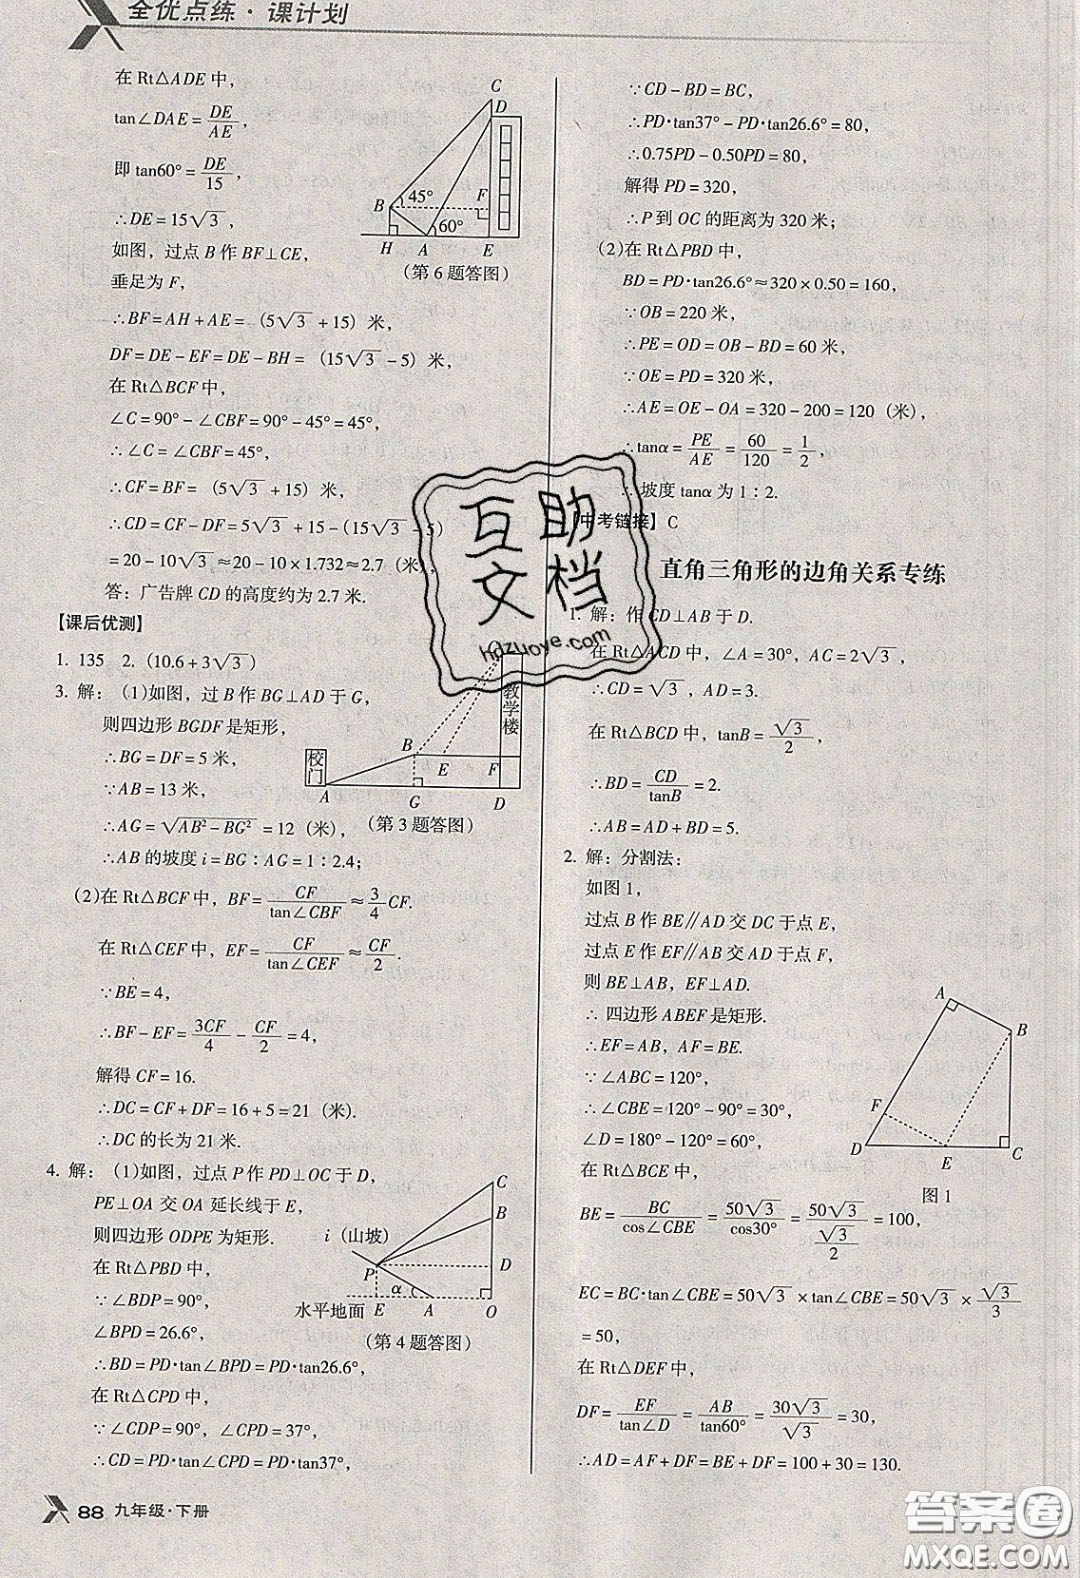 全优点练·课计划
在 Rt△ADE 中，
tan∠DAE = DE/AE，
即 tan60° = DE/15，
∴DE = 15√3，
如图，过点 B 作 BF⊥CE，
垂足为 F，
∴BF = AH + AE =（5√3 + 15）米，
DF = DE − EF = DE − BH =（15√3 − 5）米，
在 Rt△BCF 中，
∠C = 90° − ∠CBF = 90° − 45° = 45°，
∴∠C = ∠CBF = 45°，
∴CF = BF =（5√3 + 15）米，
∴CD = CF − DF = 5√3 + 15 −（15√3 − 5）
= 20 − 10√3 ≈ 2.7（米），
答：广告牌 CD 的高度约为 2.7 米.
C
D
B
45°
F
60°
H
A
E
（第 6 题答图）
【课后优测】
1. 135 2.（10.6 + 3√3）
3. 解：（1）如图，过 B 作 BG⊥AD 于 G，
则四边形 BGDF 是矩形，
∴BG = DF = 5 米，
∵AB = 13 米，
∴AG = √(AB² − BG²) = 12（米），
∴AB 的坡度 i = BG∶AG = 1∶2.4；
教学楼
校门
B
E
F
A
G
D
（第 3 题答图）
（2）在 Rt△BCF 中，BF = CF/tan∠CBF ≈ 3/4 CF.
在 Rt△CEF 中，EF = CF/tan∠CEF ≈ CF/2.
∵BE = 4，
∴BF − EF = 3CF/4 − CF/2 = 4，
解得 CF = 16.
∴DC = CF + DF = 16 + 5 = 21（米）.
∴DC 的长为 21 米.
4. 解：（1）如图，过点 P 作 PD⊥OC 于 D，
PE⊥OA 交 OA 延长线于 E，
则四边形 ODPE 为矩形.
在 Rt△PBD 中，
∵∠BDP = 90°，
∠BPD = 26.6°，
∴BD = PD·tan∠BPD = PD·tan26.6°，
在 Rt△CPD 中，
∵∠CDP = 90°，∠CPD = 37°，
∴CD = PD·tan∠CPD = PD·tan37°，
C
B
i（山坡）
P
D
α
水平地面
E
A
O
（第 4 题答图）
88 九年级·下册
∵CD − BD = BC，
∴PD·tan37° − PD·tan26.6° = 80，
∴0.75PD − 0.50PD = 80，
解得 PD = 320，
∴P 到 OC 的距离为 320 米；
（2）在 Rt△PBD 中，
BD = PD·tan26.6° ≈ 320 × 0.50 = 160，
∵OB = 220 米，
∴PE = OD = OB − BD = 60 米，
∵OE = PD = 320 米，
∴AE = OE − OA = 320 − 200 = 120（米），
∴tanα = PE/AE = 60/120 = 1/2，
∴坡度 tanα 为 1∶2.
【中考链接】C
直角三角形的边角关系专练
1. 解：作 CD⊥AB 于 D.
在 Rt△ACD 中，∠A = 30°，AC = 2√3，
∴CD = √3，AD = 3.
在 Rt△BCD 中，tanB = √3/2，
∴BD = CD/tanB = 2.
∴AB = AD + BD = 5.
2. 解：分割法：
如图 1，
过点 B 作 BE∥AD 交 DC 于点 E，
过点 E 作 EF∥AB 交 AD 于点 F，
则 BE⊥AB，EF⊥AD.
∴ 四边形 ABEF 是矩形.
∴EF = AB，AF = BE.
∵∠ABC = 120°，
∴∠CBE = 120° − 90° = 30°，
∠D = 180° − 120° = 60°，
在 Rt△BCE 中，
A
B
F
D
E
C
图 1
BE = BC/cos∠CBE = 50√3/cos30° = 50√3/(√3/2) = 100，
EC = BC·tan∠CBE = 50√3 × tan∠CBE = 50√3 × √3/3
= 50，
在 Rt△DEF 中，
DF = EF/tan∠D = AB/tan60° = 30√3/√3 = 30，
∴AD = AF + DF = BE + DF = 100 + 30 = 130.
互助文档
hdzuoye.com
答案圈
MXQE.COM